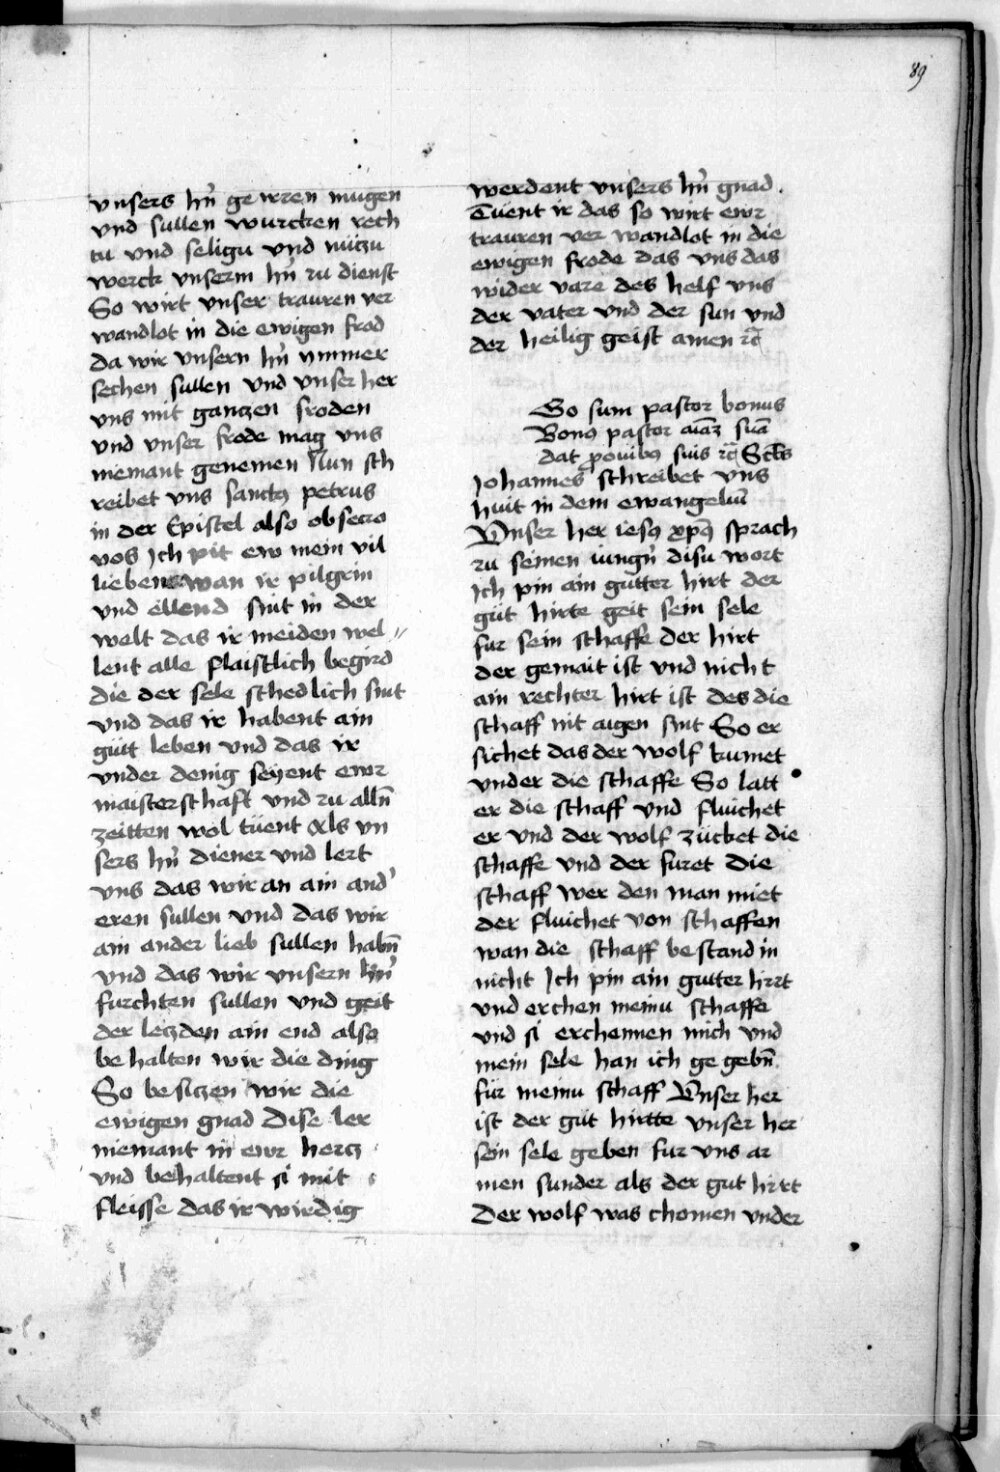 89
vnsers hr̄n ge irren mugen
vnd sullen wurcken rech
tu vnd seligu vnd nüczu
werck vnserm hr̄n zu dienst
So wirt vnser trauren ver
wandlot in die ewigen frod
da wir vnsern hr̄n ymmer
sechen sullen vnd vnser her
vns mit ganczen froden
vnd vnser frode mag vns
niemant genemen Nun sch
reibet vns sanctꝰ petrus
in der Epistel also obsecro
vos Jch pit ew mein vil
lieben wan ir pilgrin
vnd ellend sint in der
welt das ir meiden wel //
lent alle flaischlich begird
die der sele schedlich sint
vnd das ir habent ain
gütt leben vnd das ir
vnder denig seyent ewr
maisterschaft vnd zu alln̄
zeitten wol tüent Als vn
sers hr̄n diener vnd lert
vns das wir an ain and'
eren sullen vnd das wir
ain ander lieb sullen habn̄
vnd das wir vnsern hr̄n
furchten sullen vnd geit
der leczden ain end also
be halten wir die ding
So besiczen wir die
ewigen gnad Dise ler
niemant in ewr hercz
vnd behaltent si mit
fleisse das ir wirdig
werdent vnsers hr̄n gnad.
Tüent ir das so wirt ewr
trauren ver wandlot in die
ewigen frode das vns das
wider vare des helf vns
der vater vnd der sun vnd
der heilig geist amen ⁊c̄
Go sum pastor bonus
Bonꝰ pastor aīaz suā
dat pro ouibꝰ suis ⁊c̄ Sc̄tꝰ
Johannes schreibet vns
hüit in dem ewangeliū
Vnser her iesꝰ xp̄ꝰ sprach
zu seinen iungr̄n disu wort
Jch pin ain gutter hirt der
güt hirte geit sein sele
fur sein schaffe der hirt
der gemait ist vnd nicht
ain rechter hirt ist des die
schaff nit aigen sint So er
sichet das der wolf kumet
vnder die schaffe So latt
er die schaff vnd fluichet
er vnd der wolf zücket die
schaffe vnd der furet die
schaff wer den man miet
der fluichet von schaffen
wan die schaff bestand in
nicht Jch pin ain gutter hirt
vnd erchen meinu schaffe
vnd si erchennen mich vnd
mein sele han ich ge gebn̄
für meinu schaff Vnser her
ist der güt hirtte vnser her
sein sele geben fur vns ar
men sunder als der gut hirt
Der wolf was chomen vnder